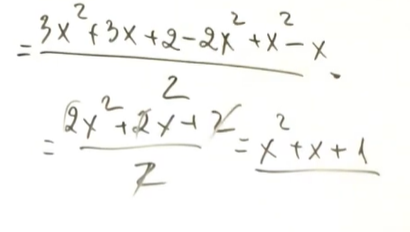 = (3x² + 3x + 2 - 2x² + x² - x) / 2 .
= (2x² + 2x + 2) / 2 = x² + x + 1